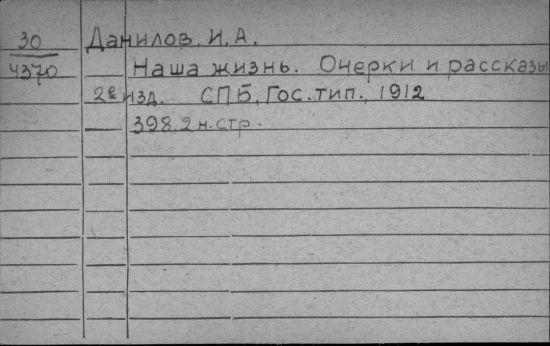 30 Данилов, И. А.
4370 Наша жизнь. Очерки и рассказы
2е изд. СПБ, Гос. тип., 1912
398. 2 н. стр.